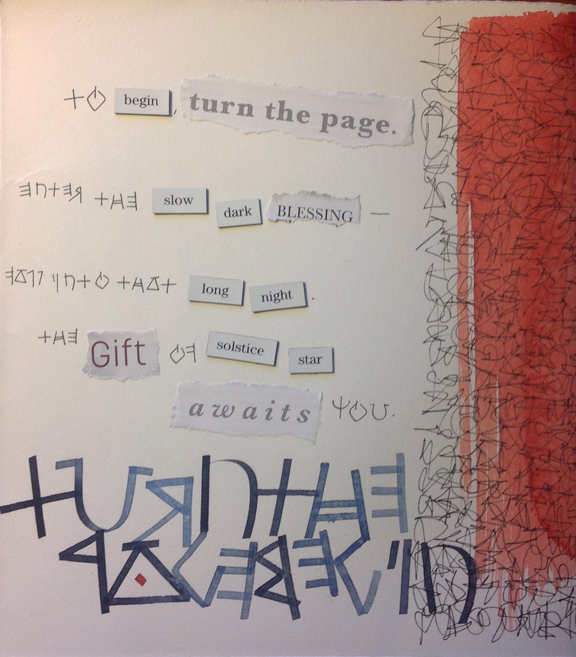 TO begin, turn the page.
ENTER THE slow dark BLESSING —
FALL INTO THAT long night.
THE Gift OF solstice star
awaits YOU.
TURN THE
PAGE BEGIN